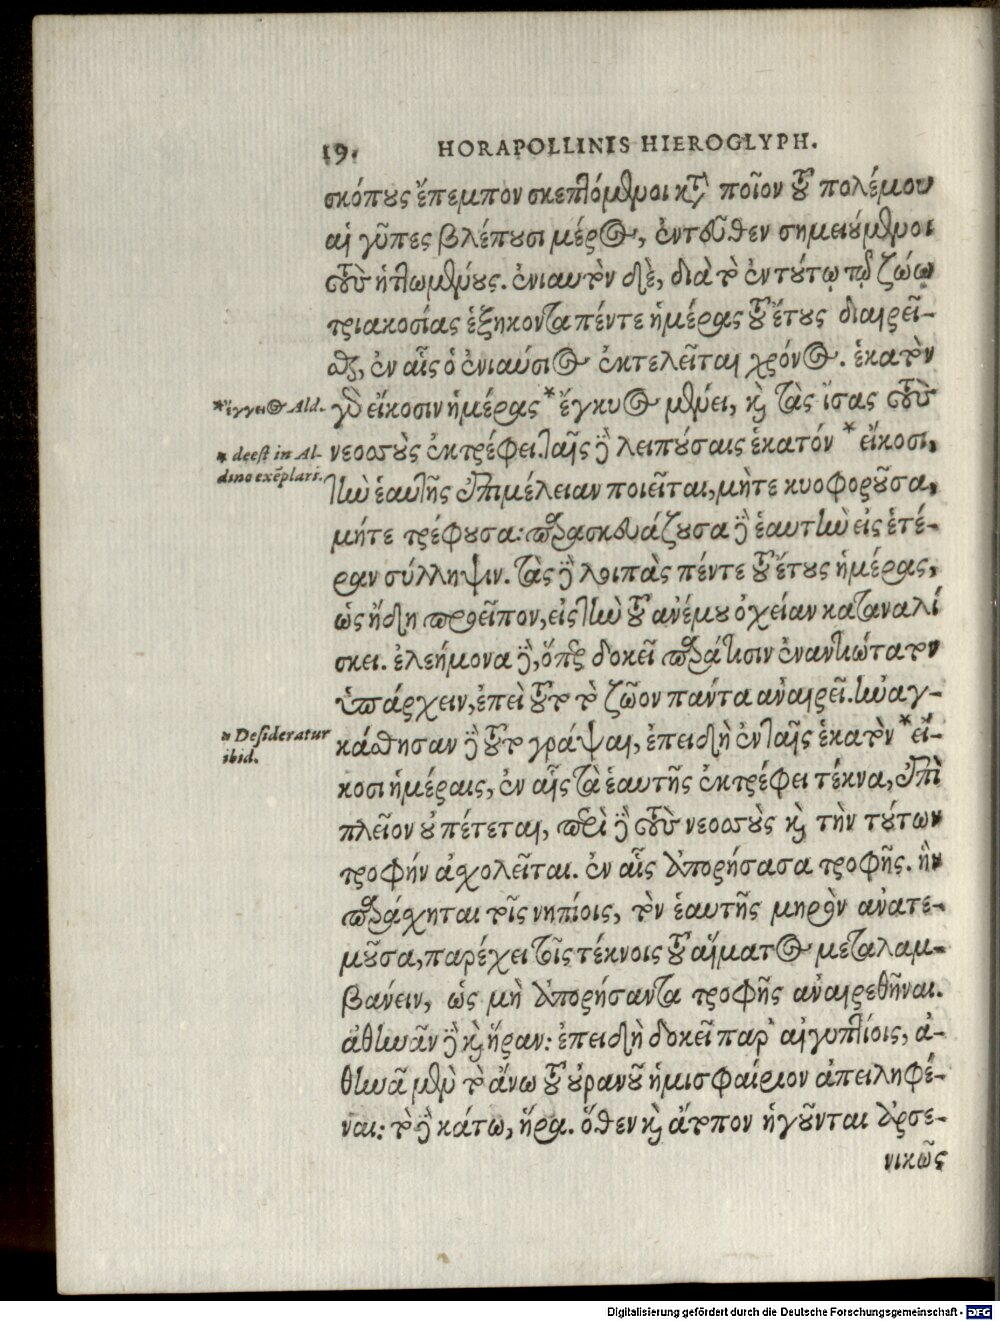 19. HORAPOLLINIS HIEROGLYPH.
σκόπους ἔπεμπον σκεπτόμενοι κατὰ ποῖον τοῦ πολέμου
αἱ γῦπες βλέπουσι μέρος, ἐντεῦθεν σημειούμενοι
τοὺς ἡττωμένους. ἐνιαυτὸν δὲ, διὰ τὸ ἐν τούτῳ τῷ ζώῳ
τριακοσίας ἑξηκονταπέντε ἡμέρας τοῦ ἔτους διαιρεῖ-
σθαι, ἐν αἷς ὁ ἐνιαύσιος ἐκτελεῖται χρόνος. ἑκατὸν
*ἔγγειος Ald.
γὸ εἴκοσιν ἡμέρας * ἔγκυος μένει, καὶ τὰς ἴσας τοὺς
* deest in Al-
dino exẽplari.
νεοσσοὺς ἐκτρέφει. ταῖς δὲ λειπούσαις ἑκατόν * εἴκοσι,
τὴν ἑαυτῆς ἐπιμέλειαν ποιεῖται, μήτε κυοφοροῦσα,
μήτε τρέφουσα: παρασκευάζουσα δὲ ἑαυτὴν εἰς ἑτέ-
ραν σύλληψιν. τὰς δὲ λοιπὰς πέντε τοῦ ἔτους ἡμέρας,
ὡς ἤδη προεῖπον, εἰς τὴν τοῦ ἀνέμου ὀχείαν καταναλί
σκει. ἐλεήμονα δὲ, ὅπερ δοκεῖ παρά τισιν ἐναντιώτατον
ὑπάρχειν, ἐπεὶ τοῦτο τὸ ζῶον πάντα ἀναιρεῖ. ἠναγ-
* Desideratur
ibid.
κάσθησαν δὲ τοῦτο γράψαι, ἐπειδὴ ἐν ταῖς ἑκατὸν * εἴ-
κοσι ἡμέραις, ἐν αἷς τὰ ἑαυτῆς ἐκτρέφει τέκνα, ἐπὶ
πλεῖον οὐ πέτεται, περὶ δὲ τοὺς νεοσσοὺς καὶ τὴν τούτων
τροφήν ἀσχολεῖται. ἐν αἷς ἀπορήσασα τροφῆς. ἣν
παράσχηται τοῖς νηπίοις, τὸν ἑαυτῆς μηρὸν ἀνατε-
μοῦσα, παρέχει τοῖς τέκνοις τοῦ αἵματος μεταλαμ-
βάνειν, ὡς μὴ ἀπορήσαντα τροφῆς ἀναιρεθῆναι.
ἀθηνᾶν δὲ καὶ ἥραν: ἐπειδὴ δοκεῖ παρ᾽ αἰγυπτίοις, ἀ-
θηνᾶ μὲν τὸ ἄνω τοῦ οὐρανοῦ ἡμισφαίριον ἀπειληφέ-
ναι: τὸ δὲ κάτω, ἥρα. ὅθεν καὶ ἄτοπον ἡγοῦνται ἀρσε-
νικῶς
Digitalisierung gefördert durch die Deutsche Forschungsgemeinschaft - DFG